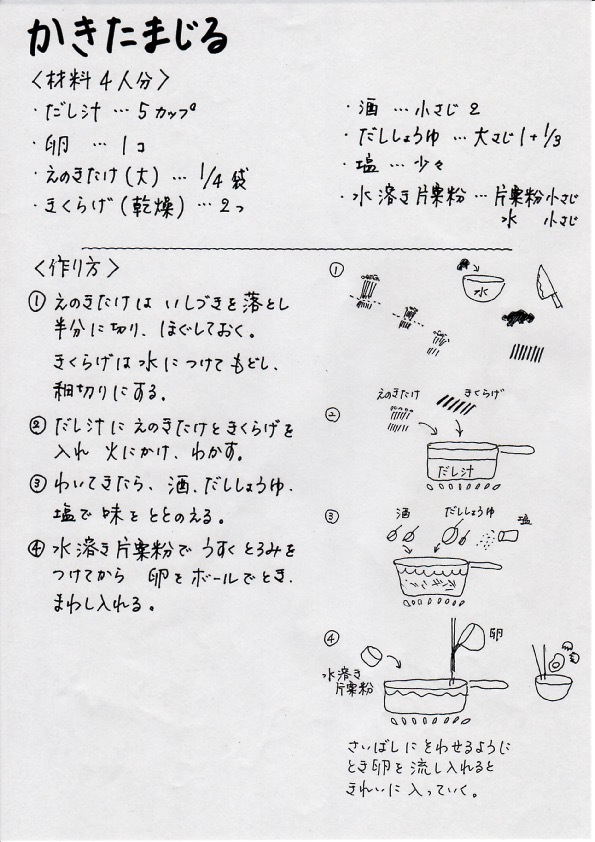 かきたまじる
〈材料4人分〉
・だし汁 … 5カップ
・卵 … 1コ
・えのきたけ(大) … 1/4袋
・きくらげ(乾燥) … 2つ
・酒 … 小さじ2
・だししょうゆ … 大さじ1+1/3
・塩 … 少々
・水溶き片栗粉 … 片栗粉小さじ
水 小さじ
〈作り方〉
① えのきたけは いしづきを落とし
半分に切り、ほぐしておく。
きくらげは水につけてもどし、
細切りにする。
② だし汁にえのきたけときくらげを
入れ 火にかけ、わかす。
③ わいてきたら、酒、だししょうゆ、
塩で味をととのえる。
④ 水溶き片栗粉で うすくとろみを
つけてから 卵をボールでとき、
まわし入れる。
①
水
②
えのきたけ きくらげ
だし汁
③
酒 だししょうゆ 塩
④
卵
水溶き
片栗粉
さいばしに そわせるように
とき卵を 流し入れると
きれいに 入っていく。